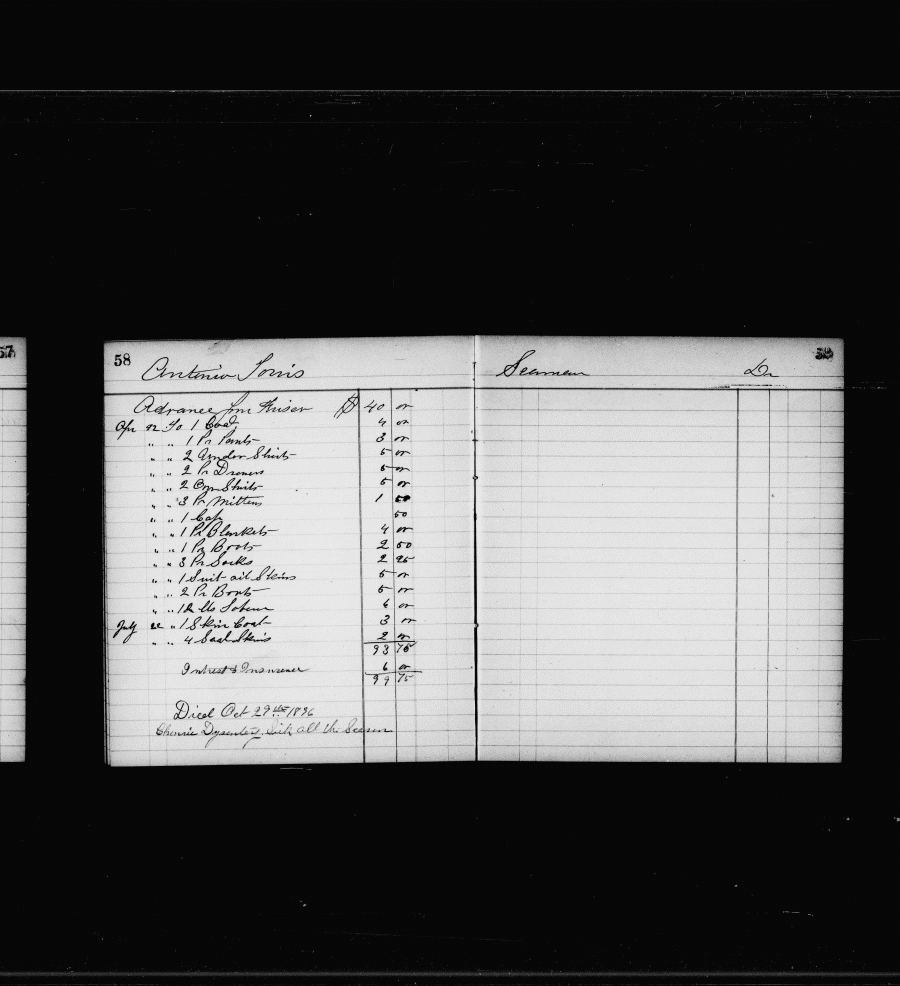 57
58
Antonio
Seaman
Dr
59
Advance from $ 40 00
Apr 12 To 1 Coat 4 00
" " 1 Pr Pants 3 00
" " 2 Under Shirts 5 00
" " 2 Pr Drawers 5 00
" " 2 Com Shirts 5 00
" " 3 Pr Mittens 1 50
" " 1 Cap 50
" " 1 Pr Blankets 4 00
" " 1 Pr Boots 2 50
" " 3 Pr Socks 2 25
" " 1 Suit oil Skins 5 00
" " 2 Pr Boots 5 00
" " 12 lbs 6 00
July 22 " 1 Skin Coat 3 00
" " 4 Seal Skins 2 00
93 75
Intrest & Insurance 6 00
99 75
Died Oct 29th 1896
Dysentery Sick all the Season